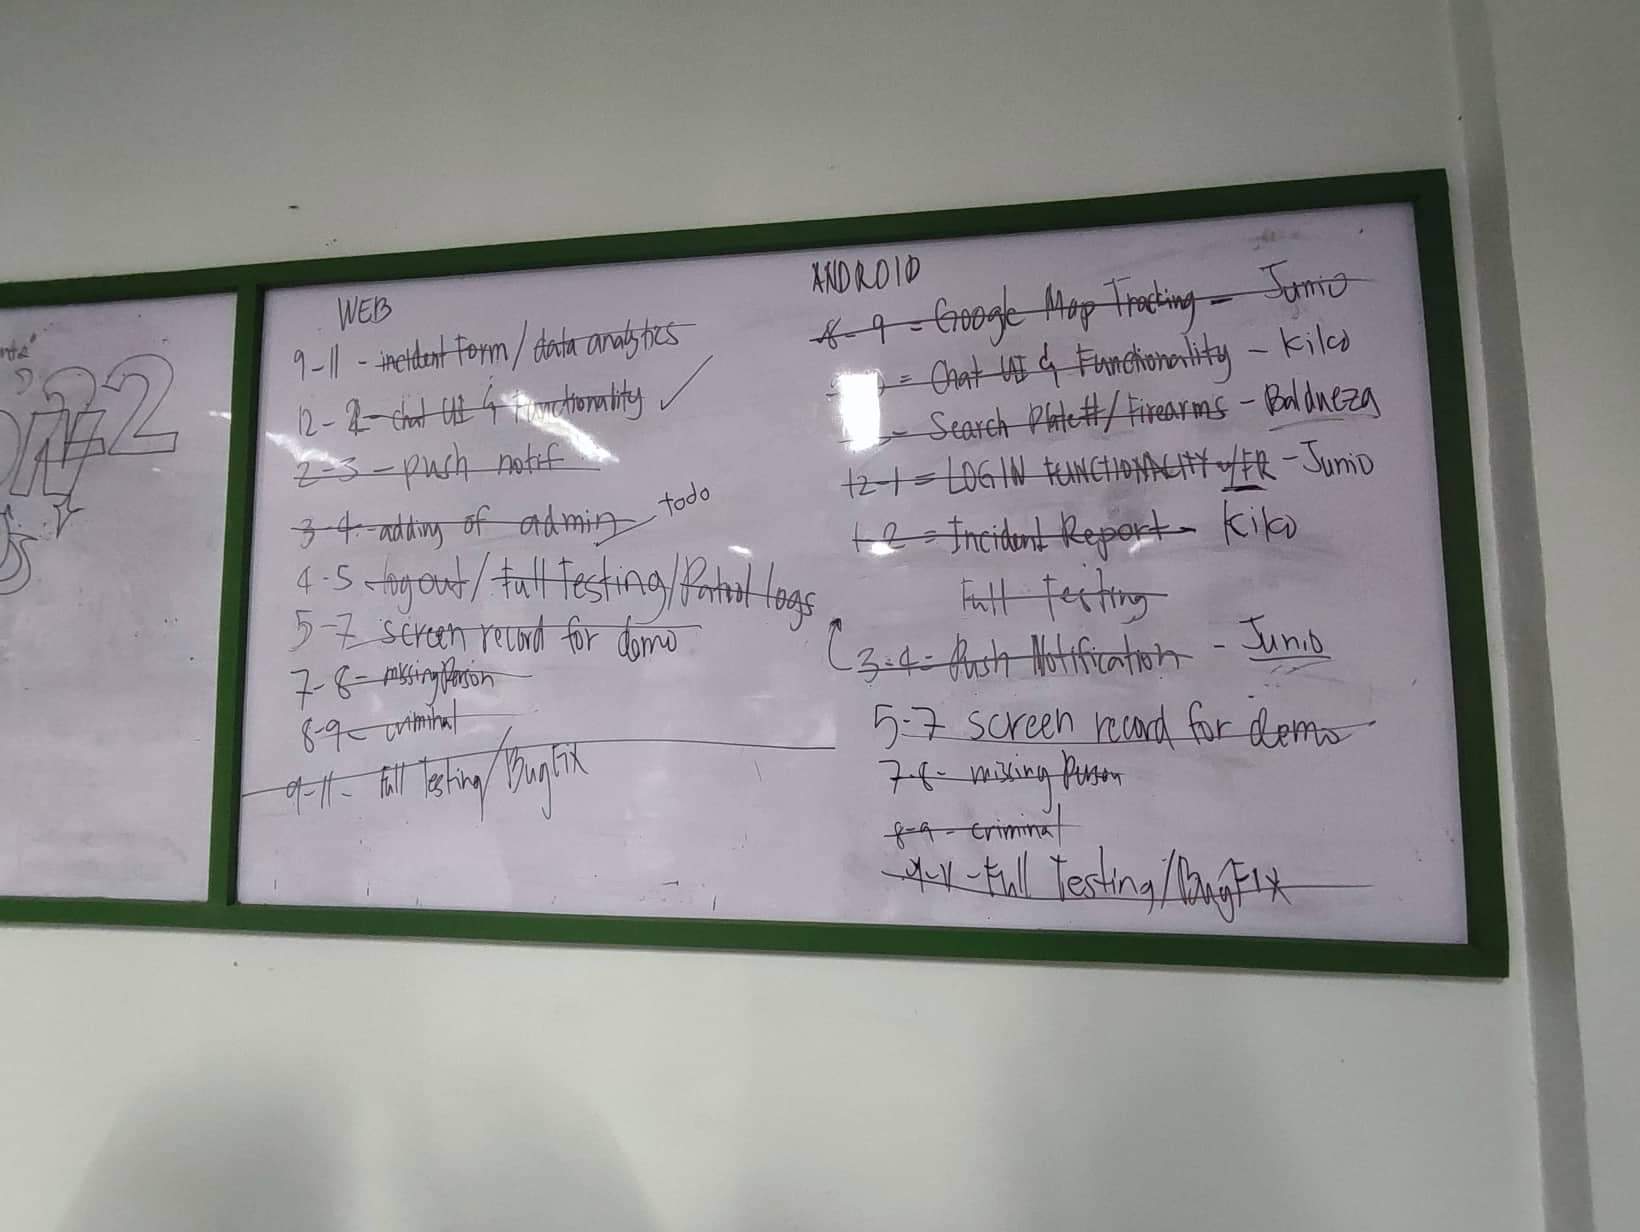 WEB
9-11 - incident form / data analytics
12-2 - chat UI & Functionality ✓
2-3 - push notif
3-4 - adding of admin todo
4-5 - logout / Full Testing / Patrol logs
5-7 screen record for demo
7-8 - missing Person
8-9 - criminal
9-11 - Full Testing / BugFix
ANDROID
8-9 = Google Map Tracking - Junio
= Chat UI & Functionality - Kiko
- Search Plate# / Firearms - Baldueza
12-1 = LOGIN FUNCTIONALITY w/FR - Junio
1-2 = Incident Report - Kiko
Full Testing
3-4 = Push Notification - Junio
5-7 screen record for demo
7-8 - missing Person
8-9 - criminal
9-11 - Full Testing / BugFix
22